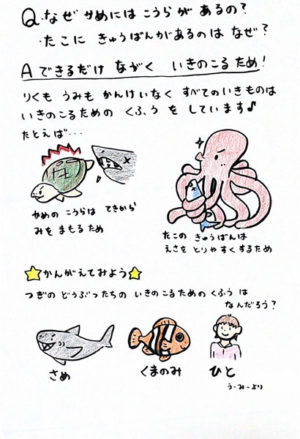 Q.なぜ かめには こうらが あるの？
・たこに きゅうばんがあるのは なぜ？
A できるだけ ながく いきのこるため！
りくも うみも かんけいなく すべてのいきものは
いきのこるための くふうを しています♪
たとえば…
かめの こうらは てきから
みを まもるため
たこの きゅうばんは
えさを とりやすくするため
かんがえてみよう
つぎの どうぶつたちの いきのこるための くふうは
なんだろう？
さめ
くまのみ
ひと
うーみーより